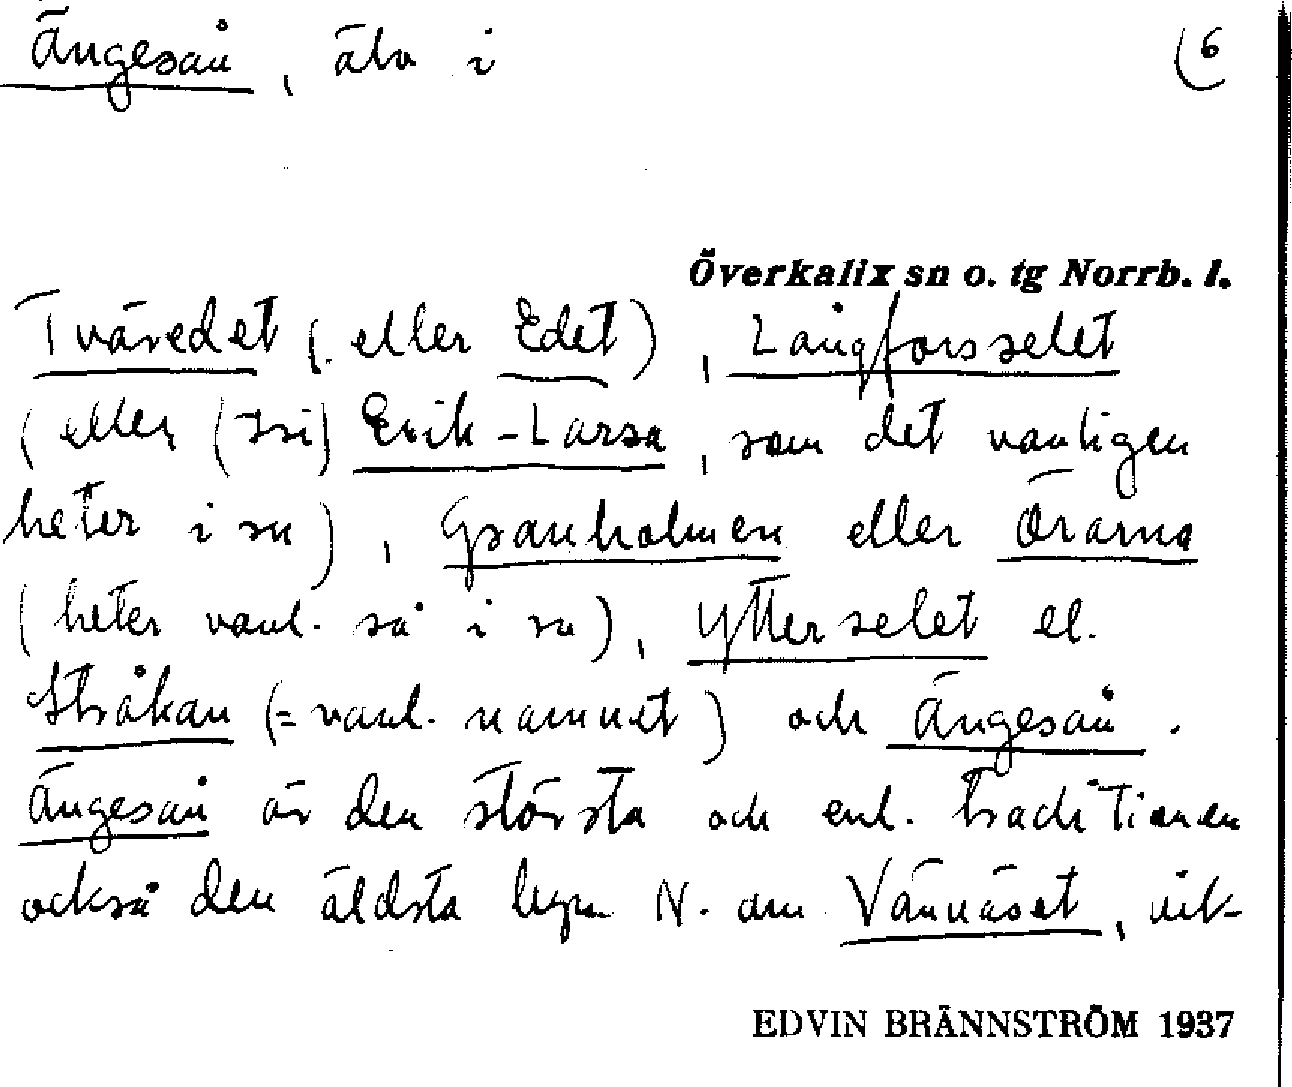 Ängesån, älv i (6
Överkalix sn o. tg Norrb. l.
Tväredet (eller Edet), Långforsselet
(eller (Isi) Erik-Larsa, som det vanligen
heter i sn), Granholmen eller Örarna
(heter vanl. så i sn), Ytterselet el.
Stråkan (= vanl. namnet) och Ängesån.
Ängesån är den största och enl. traditionen
också den äldsta byn N. om Vännäset, vik-
EDVIN BRÄNNSTRÖM 1937